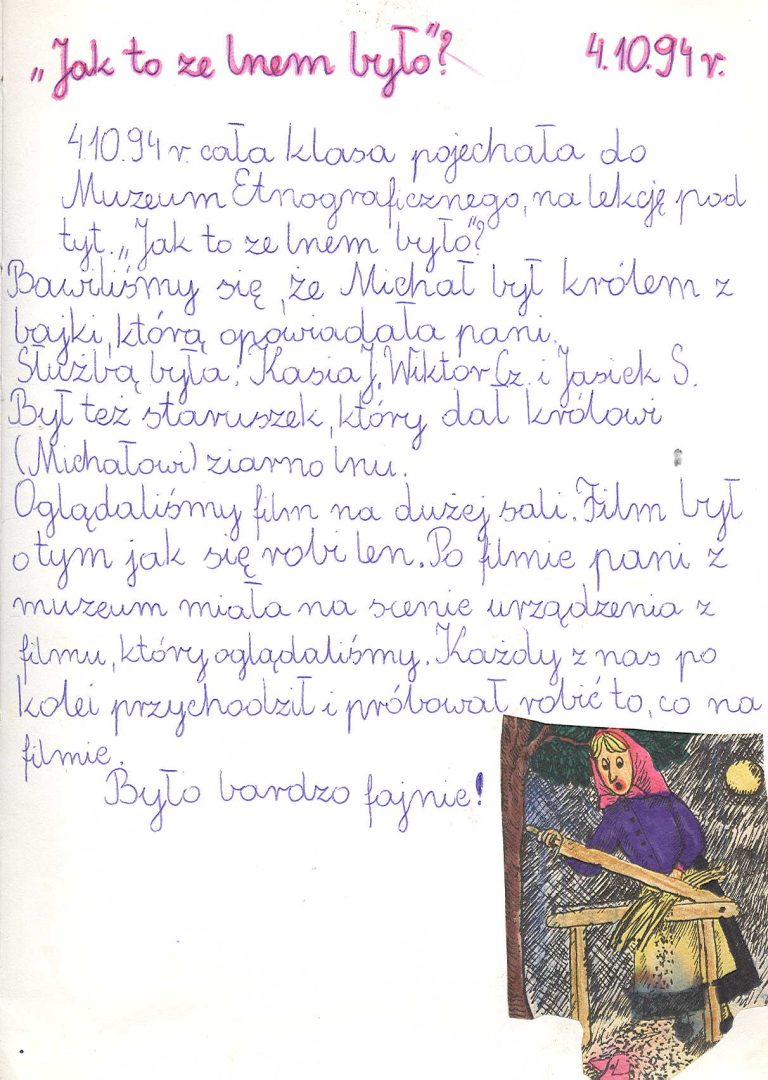 „Jak to ze lnem było”? 4.10.94 r.
4.10.94 r. cała klasa pojechała do
Muzeum Etnograficznego, na lekcję pod
tyt. „Jak to ze lnem było”?
Bawiliśmy się, że Michał był królem z
bajki, którą opowiadała pani.
Służbą była: Kasia J, Wiktor Cz. i Jasiek S.
Był też staruszek, który dał królowi
(Michałowi) ziarno lnu.
Oglądaliśmy film na dużej sali. Film był
o tym jak się robi len. Po filmie pani z
muzeum miała na scenie urządzenia z
filmu, który oglądaliśmy. Każdy z nas po
kolei przychodził i próbował robić to, co na
filmie.
Było bardzo fajnie!